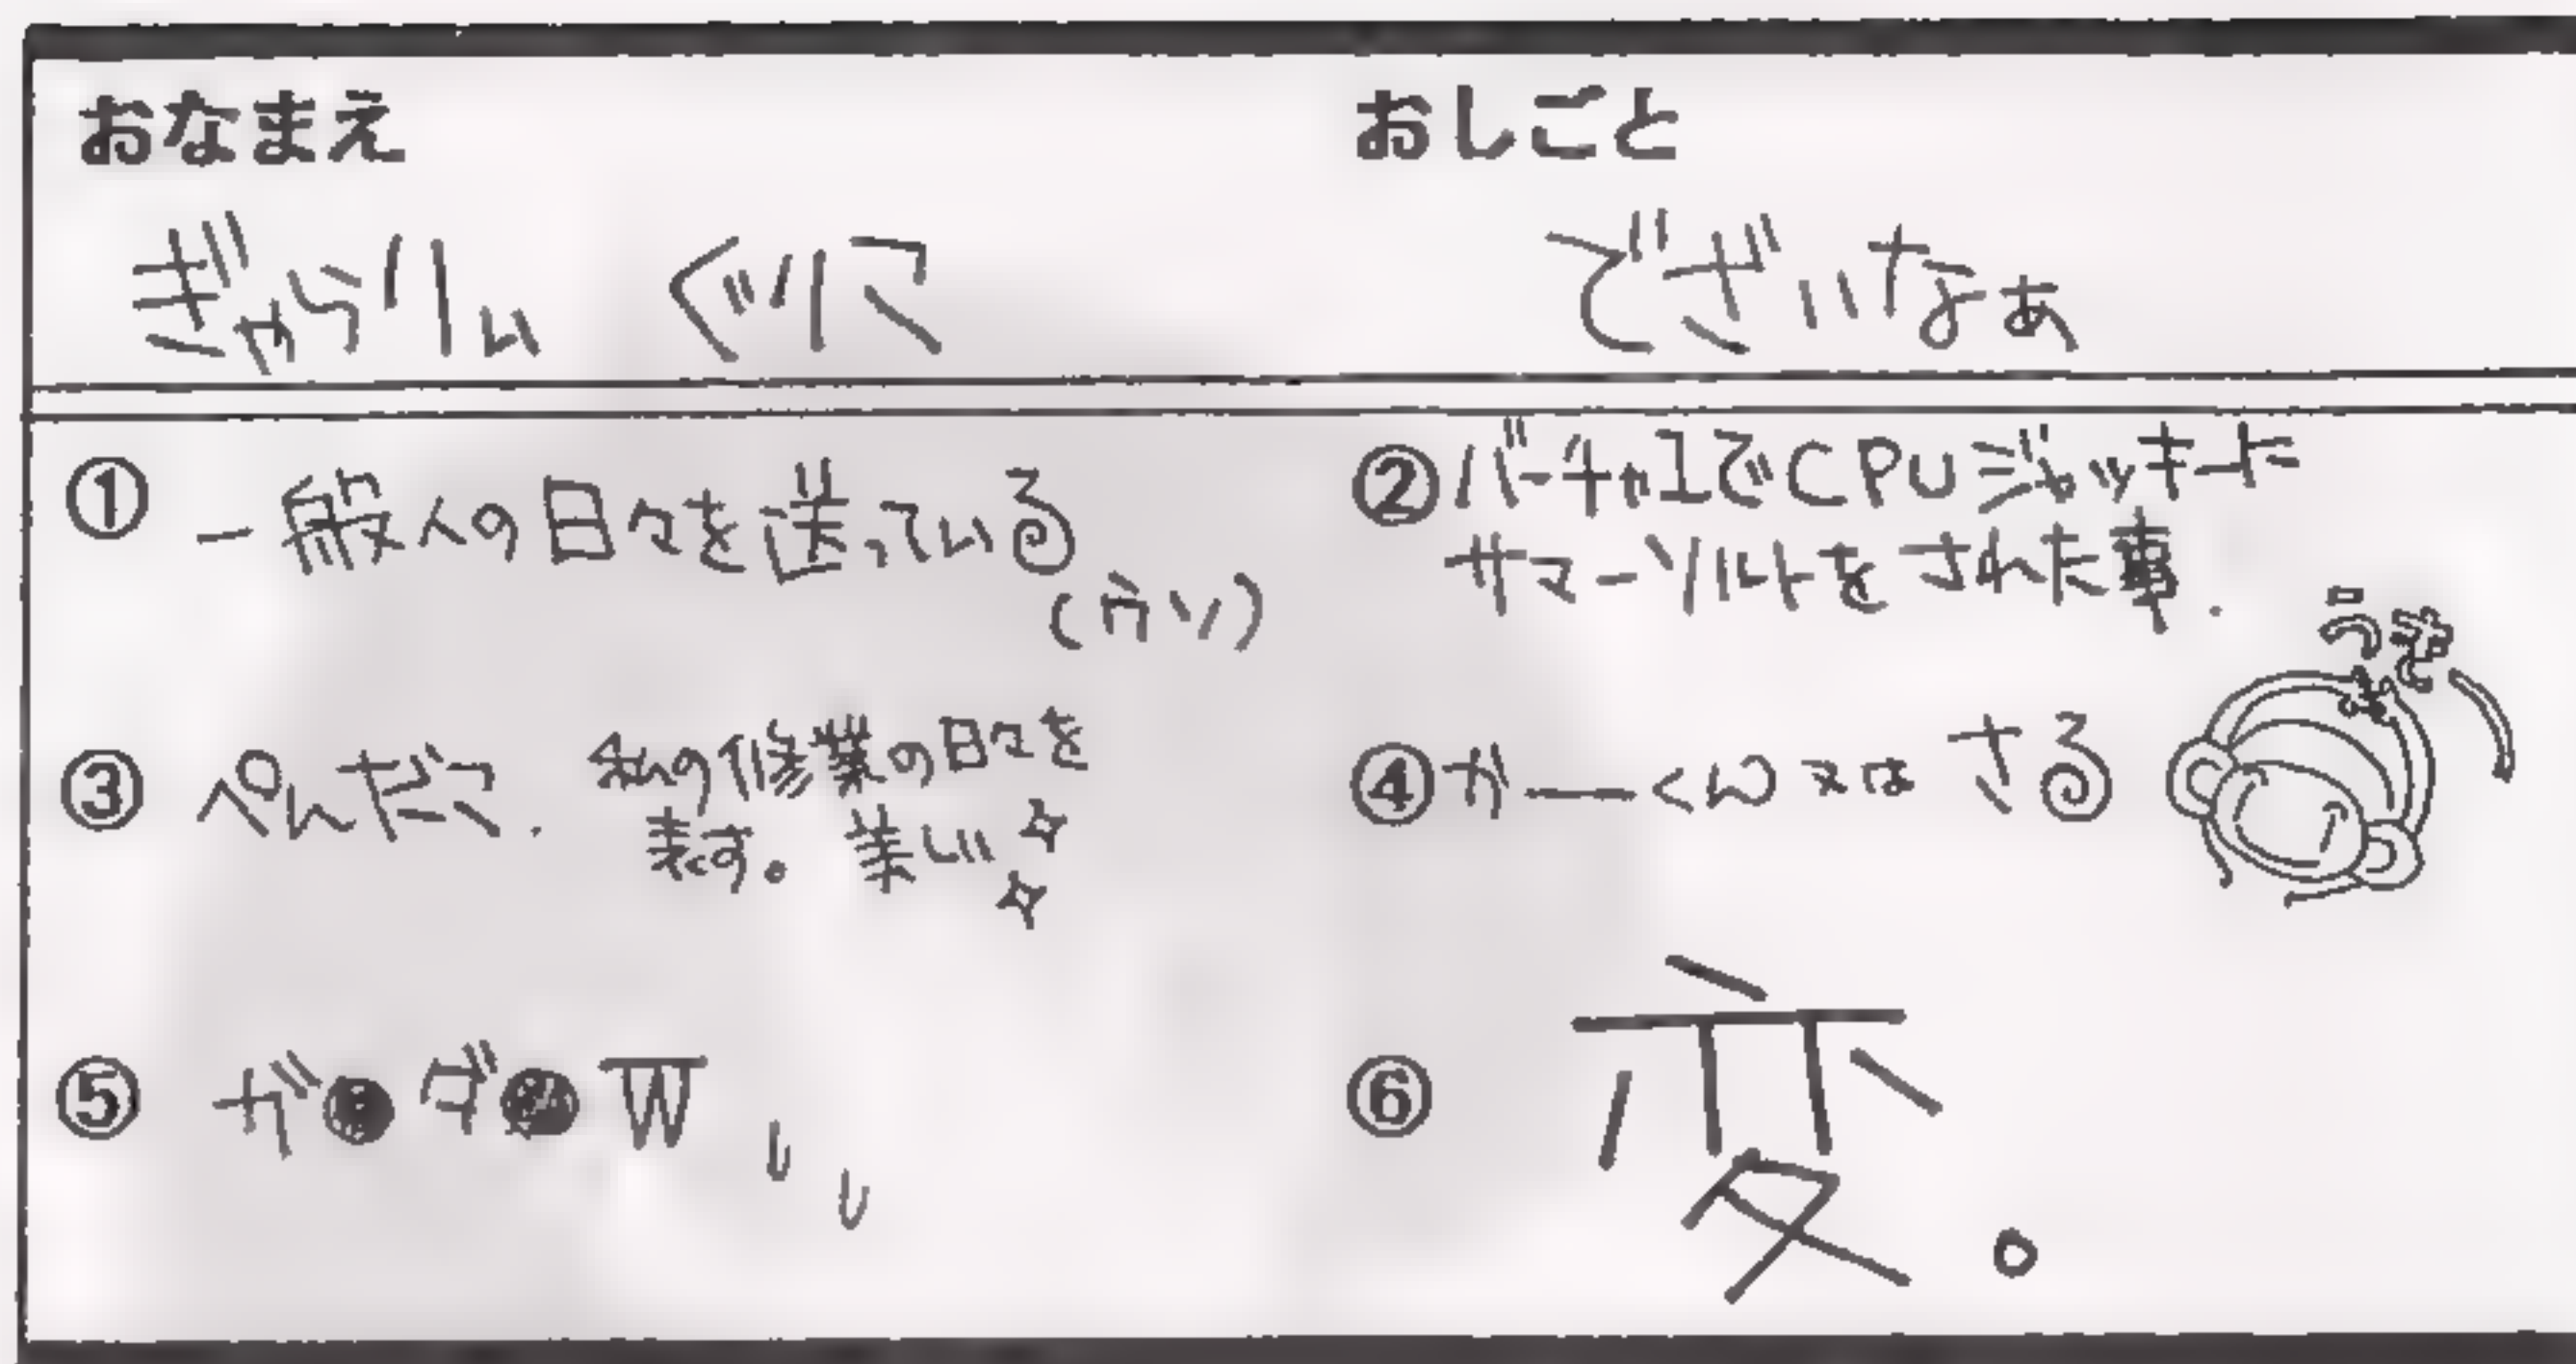 おなまえ
ぎゃらりぃ ぐりこ
おしごと
でざいなぁ
① 一般人の日々を送っている
(ウソ)
② バーチャ1でCPUジャッキーに
サマーソルトをされた事.
③ ぺんだこ. 私の修業の日々を
表す。美しい
④ かーくん又は さる
うき
⑤ ガ●ダ●W
⑥ 変。